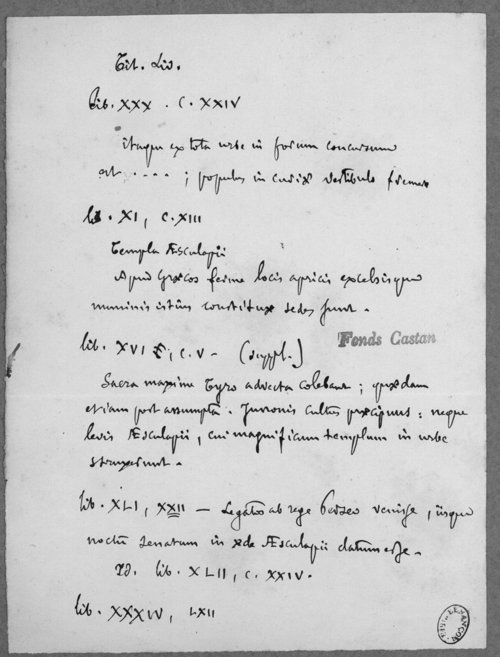 Tit. Liv.
Lib. XXX . C. XXIV
itaque ex tota urbe in forum concursum
est .... ; populus in curiæ vestibulo fremere
lib. XI, C. XIII
Templa Æsculapii
Apud Græcos ferme locis apricis excelsisque
numinis istius constitutæ sedes sunt.
lib. XVI, C. V - (suppl.)
Fonds Castan
Sacra maxime Tyro advecta colebant ; quædam
etiam post assumpta. Junonis cultus præcipuus ; neque
levis Æsculapii, cui magnificum templum in urbe
struxerunt.
lib. XLI, XXII — Legatos ab rege Perseo venisse, iisque
noctu senatum in æde Æsculapii datum esse.
Id. lib. XLII, C. XXIV.
lib. XXXIV, LXII